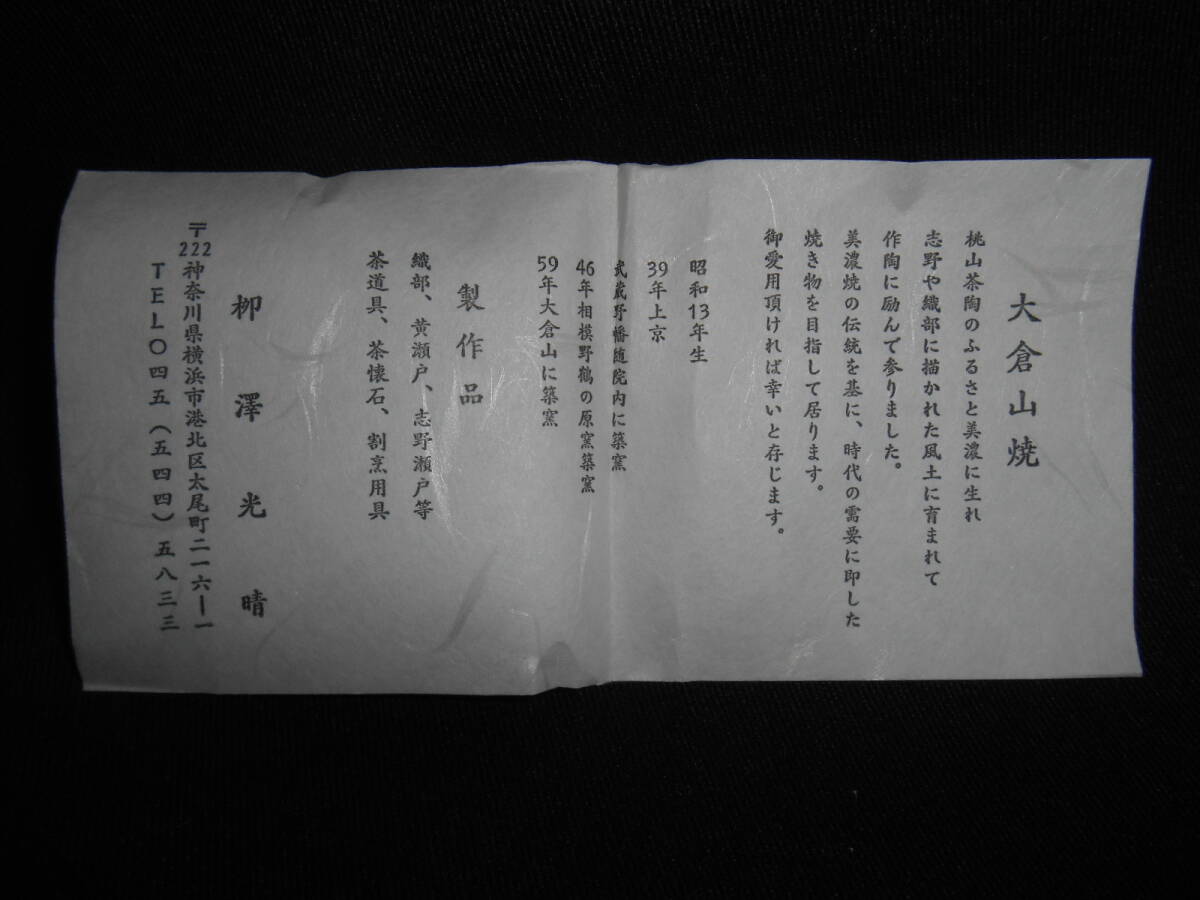 大倉山焼
桃山茶陶のふるさと美濃に生れ
志野や織部に描かれた風土に育まれて
作陶に励んで参りました。
美濃焼の伝統を基に、時代の需要に即した
焼き物を目指して居ります。
御愛用頂ければ幸いと存じます。
昭和13年生
39年上京
武蔵野幡随院内に築窯
46年相模野鶴の原窯築窯
59年大倉山に築窯
製作品
織部、黄瀬戸、志野瀬戸等
茶道具、茶懐石、割烹用具
柳澤光晴
〒222神奈川県横浜市港北区太尾町二一六―一
TEL〇四五(五四四)五八三三